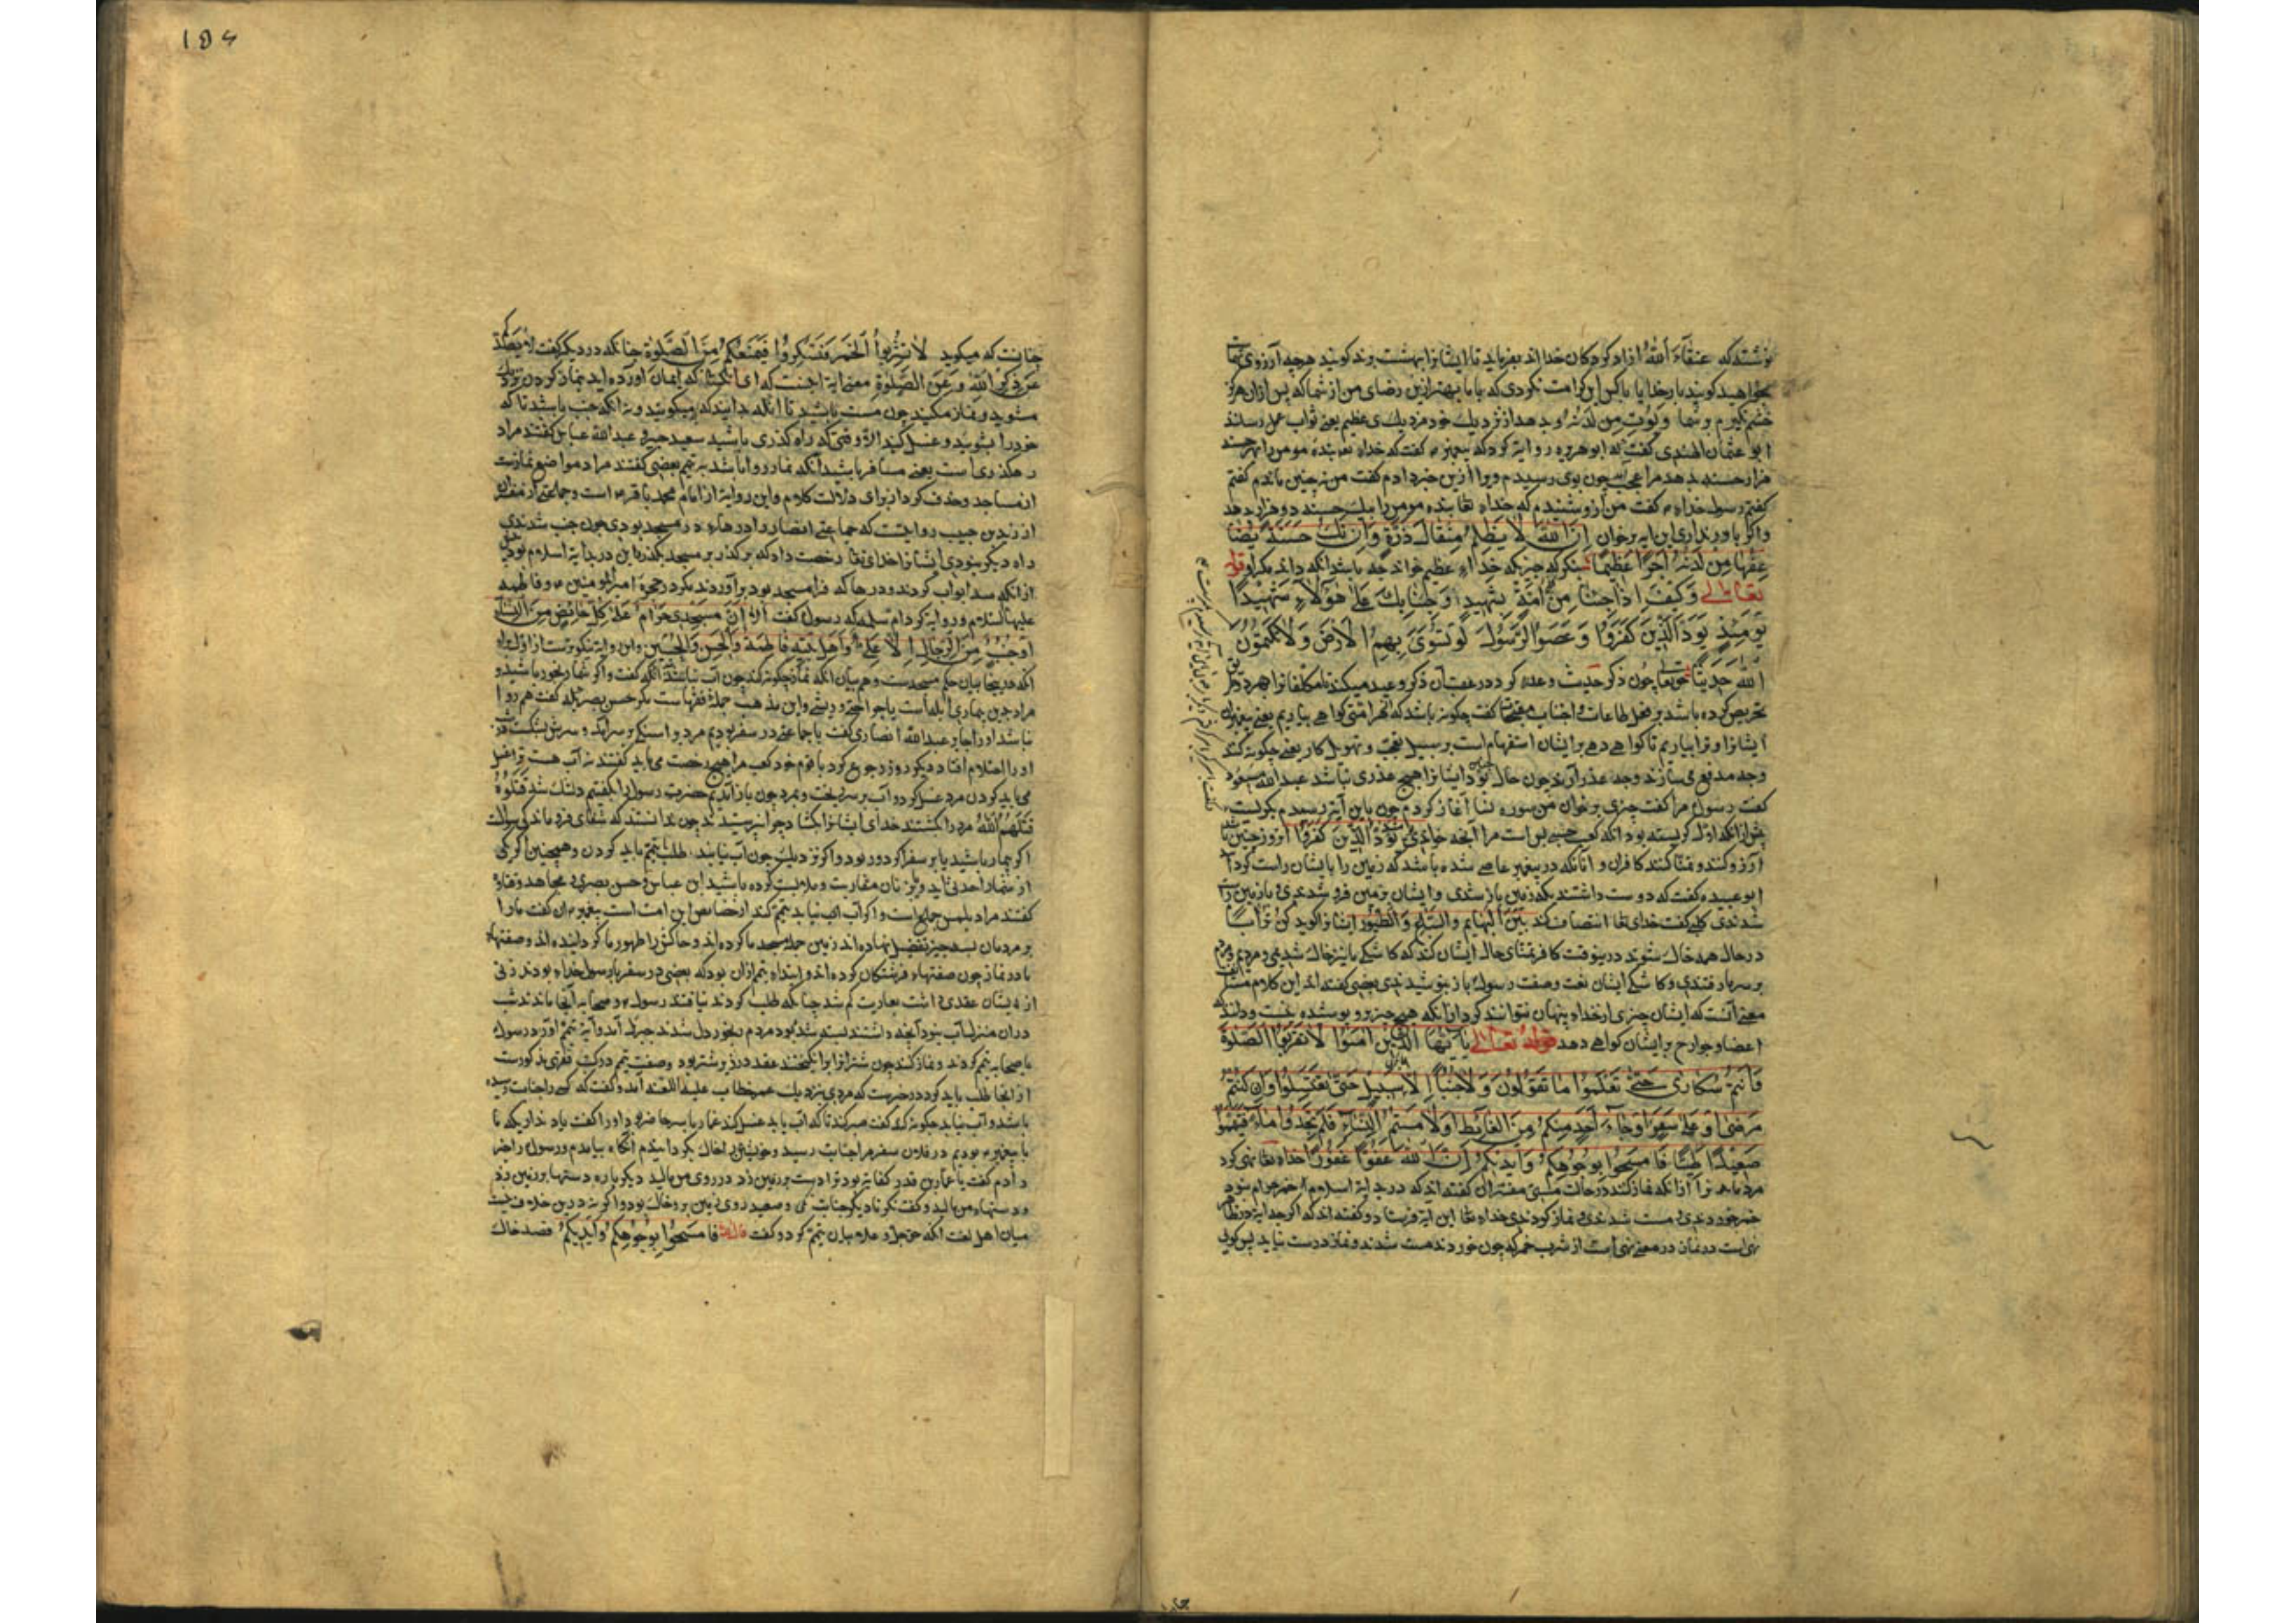 نوشتند که عتقاء الله ازاد کردکان خدا اند بفرماید تا ایشانرا ببهشت برند کویند هرچه آرزوی شماست
بخواهید کویند بار خدایا با کس این کرامت نکردی که با ما بهتر ازین رضای من از شما که پس ازان هرکز
خشم نکیرم بر شما ویؤت من لدنه و بدهد از نزدیك خود مزد یك عظیم یعنی ثواب عمل رساند
ابو عثمان الهندی کفت که ابو هریره روایة کرد که پیغمبر ۴ کفت که خداء تعا بنده مومن را بهر حسنه
هزار حسنه بدهد مرا عجب چون بوی رسیدم ویرا ازین خبر دادم کفت من نه چنین باندم کفتم
کفتم رسول خداء ۴ کفت من ازو شنیدم که خداء تعا بنده مومن را بیك حسنه دو هزار بدهد
واکر باور نداری این ایه برخوان ان الله لا یظلم مثقال ذرة وان تك حسنة یضا
عفها من لدنه أجرا عظیما بنکر که چیزیکه خداء عظیم خواند چه باشد انکه داند مکر او قوله
تعالی فکیف اذا جئنا من کل أمة بشهید وجئنا بك علی هؤلاء شهیدا
یومئذ یود الذین کفروا وعصوا الرسول لو تسوی بهم الارض ولا یکتمون
الله حدیثا حقتعا چون ذکر حدیث وعده کرد در عقب آن ذکر وعید میکند تا مکلفانرا بهر دو طریق
تحریص کرده باشد بر فعل طاعات و اجتناب مقبحات کفت چکونه باشد که از هر امتی کواهی بیاریم یعنی پیغمبران
ایشانرا و ترا بیاریم تا کواهی دهی بر ایشان استفهام است بر سبیل تعجب و تهویل کار یعنی چکونه کنند
وچه مدفع می سازند وچه عذر آرند چون حال بود ایشانرا هیچ عذری نباشد عبدالله مسعود
کفت رسول مرا کفت چیزی برخوان من سوره نسا آغاز کردم چون باین آیة رسیدم بکریست
پیش ازانکه اول کریسته بود انکه کفت حسبی بس است مرا آنچه خواندی یود الذین کفروا انروز چنین باشد
آرزو کنند و تمنا کنند کافران و انانکه در پیغمبر عاصی شده باشند که زمین را با ایشان راست کرد
ابو عبیده کفت که دوست داشتند که زمین باز شدی وایشان بزمین فرو شدندی و باز زمین راست
شدندی کلبی کفت خدای تعا انتصاف کند بین البهایم والسباع والطیور ایشانرا کوید کن ترابا
در حال همه خاك شوند درینوقت کافر تمنای حال ایشان کند که کاشکی با نیز خاك شدیمی و مردم
بر سر ما رفتندی و کاشکی ایشان نعت وصفت رسول ۴ باز نپوشیدندی بعضی کفته اند این کلام مستانف
معنی آنست که ایشان چیزی از خداء پنهان نتوانند کرد ازانکه هیچ چیز برو پوشیده نیست
اعضا و جوارح بر ایشان کواهی دهد قوله تعالی یا أیها الذین امنوا لا تقربوا الصلوة
وأنتم سکاری حتی تعلموا ما تقولون ولا جنبا الا عابری سبیل حتی تغتسلوا وان کنتم
مرضی او علی سفر او جاء أحد منکم من الغائط او لامستم النساء فلم تجدوا ماء فتیمموا
صعیدا طیبا فامسحوا بوجوهکم وأیدیکم ان الله کان عفوا غفورا خداء تعا نهی کرد
مردمانرا ازانکه نماز کنند در حالت مستی مفسران کفته اند که در بدایة اسلام خمر حرام نبود
خمر خوردندی و مست شدندی و نماز کردندی خداء تعا این آیة فرستاد و کفته اند که اکر چه آیة در ظاهر
نهی است در نماز در معنی نهی است از شرب خمر که چون خوردند مست شدند و نماز درست نیاید پس کویی
184
چنانست که میکوید لا تشربوا الخمر فتسکروا فیمنعکم من الصلوة چنانکه در دیکر کفت لا یصدکم
عن ذکر الله وعن الصلوة معنی ایة اینست که ای کسانی که ایمان اورده اید بنماز کردن نزدیك
مشوید و نماز مکنید چون مست باشید تا انکه بدانید که چه میکویید و نه انکه جنب باشید تا که
خود را بشویید و غسل کنید الا وقتی که راه کذری باشید سعید جبیر و عبدالله عباس کفتند مراد
رهکذری است یعنی مسافر باشید آنکه نماز روا باشد به تیمم بعضی کفتند مراد مواضع نماز است
از مساجد وحذف کرد از برای دلالت کلام واین روایة از امام محمد باقر ۴ است وجماعتی از مفسران
از زید بن حبیب روایتست که جماعتی انصار را درها در مسجد بودی چون جنب شدندی
راه دیکر نبودی ایشانرا خدای تعا رخصت داد که بر کذر بر مسجد بکذرند این در بدایة اسلام بود پیش
ازانکه سد ابواب کردند و درها که فرا مسجد بود برآوردند مکر در حجرۀ امیرالمومنین ۴ و فاطمه
علیهما السلام و روایة کرد ام سلمه که رسول کفت ألا إن مسجدی حرام علی کل حائض من النساء
او جنب من الرجال الا علی وأهل بیته فاطمة والحسن والحسین و این روایة نیکوترست از اول
انکه در ینجا بیان حکم مسجد ست وهم بیان انکه نماز چکونه کند چون آب نباشد انکه کفت واکر شما رنجور باشید و
مراد جن بیماری ابله است یا جراحتی و ریشی واین مذهب جملۀ فقهاست مکر حسن بصری که کفت هم روا
نباشد اورا جابر و عبدالله انصاری کفت با جماعتی در سفر بودیم مرد برا سنکی بر سر آمد و سرش بشکست در شب
اورا احتلام افتاد دیکر روز رجوع کرد با قوم خود کفت مرا هیچ رخصت می یابید کفتند نه آب هست ترا غسل
می باید کردن مرد غسل کرد و آب بر سر ریخت و بمرد چون باز آمدیم حضرت رسول را بکفتیم دلتنك شد قتلوه
قتلهم الله مرد را کشتند خدای ایشانرا بکشاد چرا نپرسیدند چون ندانستند که شفای فرو ماندکی سوالست
اکر بیمار باشید یا بر سفر اکر دور بود و اکر نزدیك چون آب نیابند طلب تیمم باید کردن وهمچنین اکر یکی
از شما از احدثی آید و با زنان مقاربت و ملامست کرده باشید ابن عباس وحسن بصری و مجاهد وقتاده
کفتند مراد بلمس جماع است واکر آب نیابد تیمم کند از خصایص این امت است پیغمبر ۴ کفت مارا
بر مردمان بسه چیز تفضیل نهاده اند زمین جمله مسجد ما کرده اند و خاکش را طهور ما کردانیده اند وصفتهاء
ما در نماز چون صفتهاء فرشتکان کرده اند و ابتداء تیمم ازان بود که بعضی در سفر با رسول خداء بودند زنی
از ایشان عقدی داشت بعاریت کم شد چنانکه طلب کردند نیافتند رسول ۴ و صحابه آنجا ماندند شب
دران منزل آب نبود آنچه داشتند بسته شده بود مردم رنجور دل شدند جبرئیل آمد و آیة تیمم آورد رسول
با صحابه تیمم کردند و نماز کنند چون شتر را برانکیختند عقد در زیر شتر بود وصفت تیمم در کتب فقهی مذکورست
از آنجا طلب باید کرد در خبرست که مردی نزدیك عمر خطاب علیه اللعنه آمد و کفت که کسی را جنابت رسیده
باشد و آب نیابد چکونه کند کفت صبر کند تا که آب یابد غسل کند عمار یاسر حاضر بود اورا کفت یاد نداری که ما
با پیغمبر ۴ بودیم در فلان سفر مرا جنابت رسید و خویشتن را خاك بکردانیدم آنکاه بیامدم و رسول را خبر
دادم کفت یا عمار این قدر کفایة بود ترا دست بر زمین زد در روی من مالید دیکر باره دستها بر زمین زد
و دستهاء من مالید و کفت نکر تا دیکر چنان نکنی و صعید روی زمین بر و خاك بود و اکر نه درین خلاف نیست
میان اهل لغت انکه حق جل وعلا بیان تیمم کرد و کفت قال الله فامسحوا بوجوهکم وأیدیکم قصد خاك